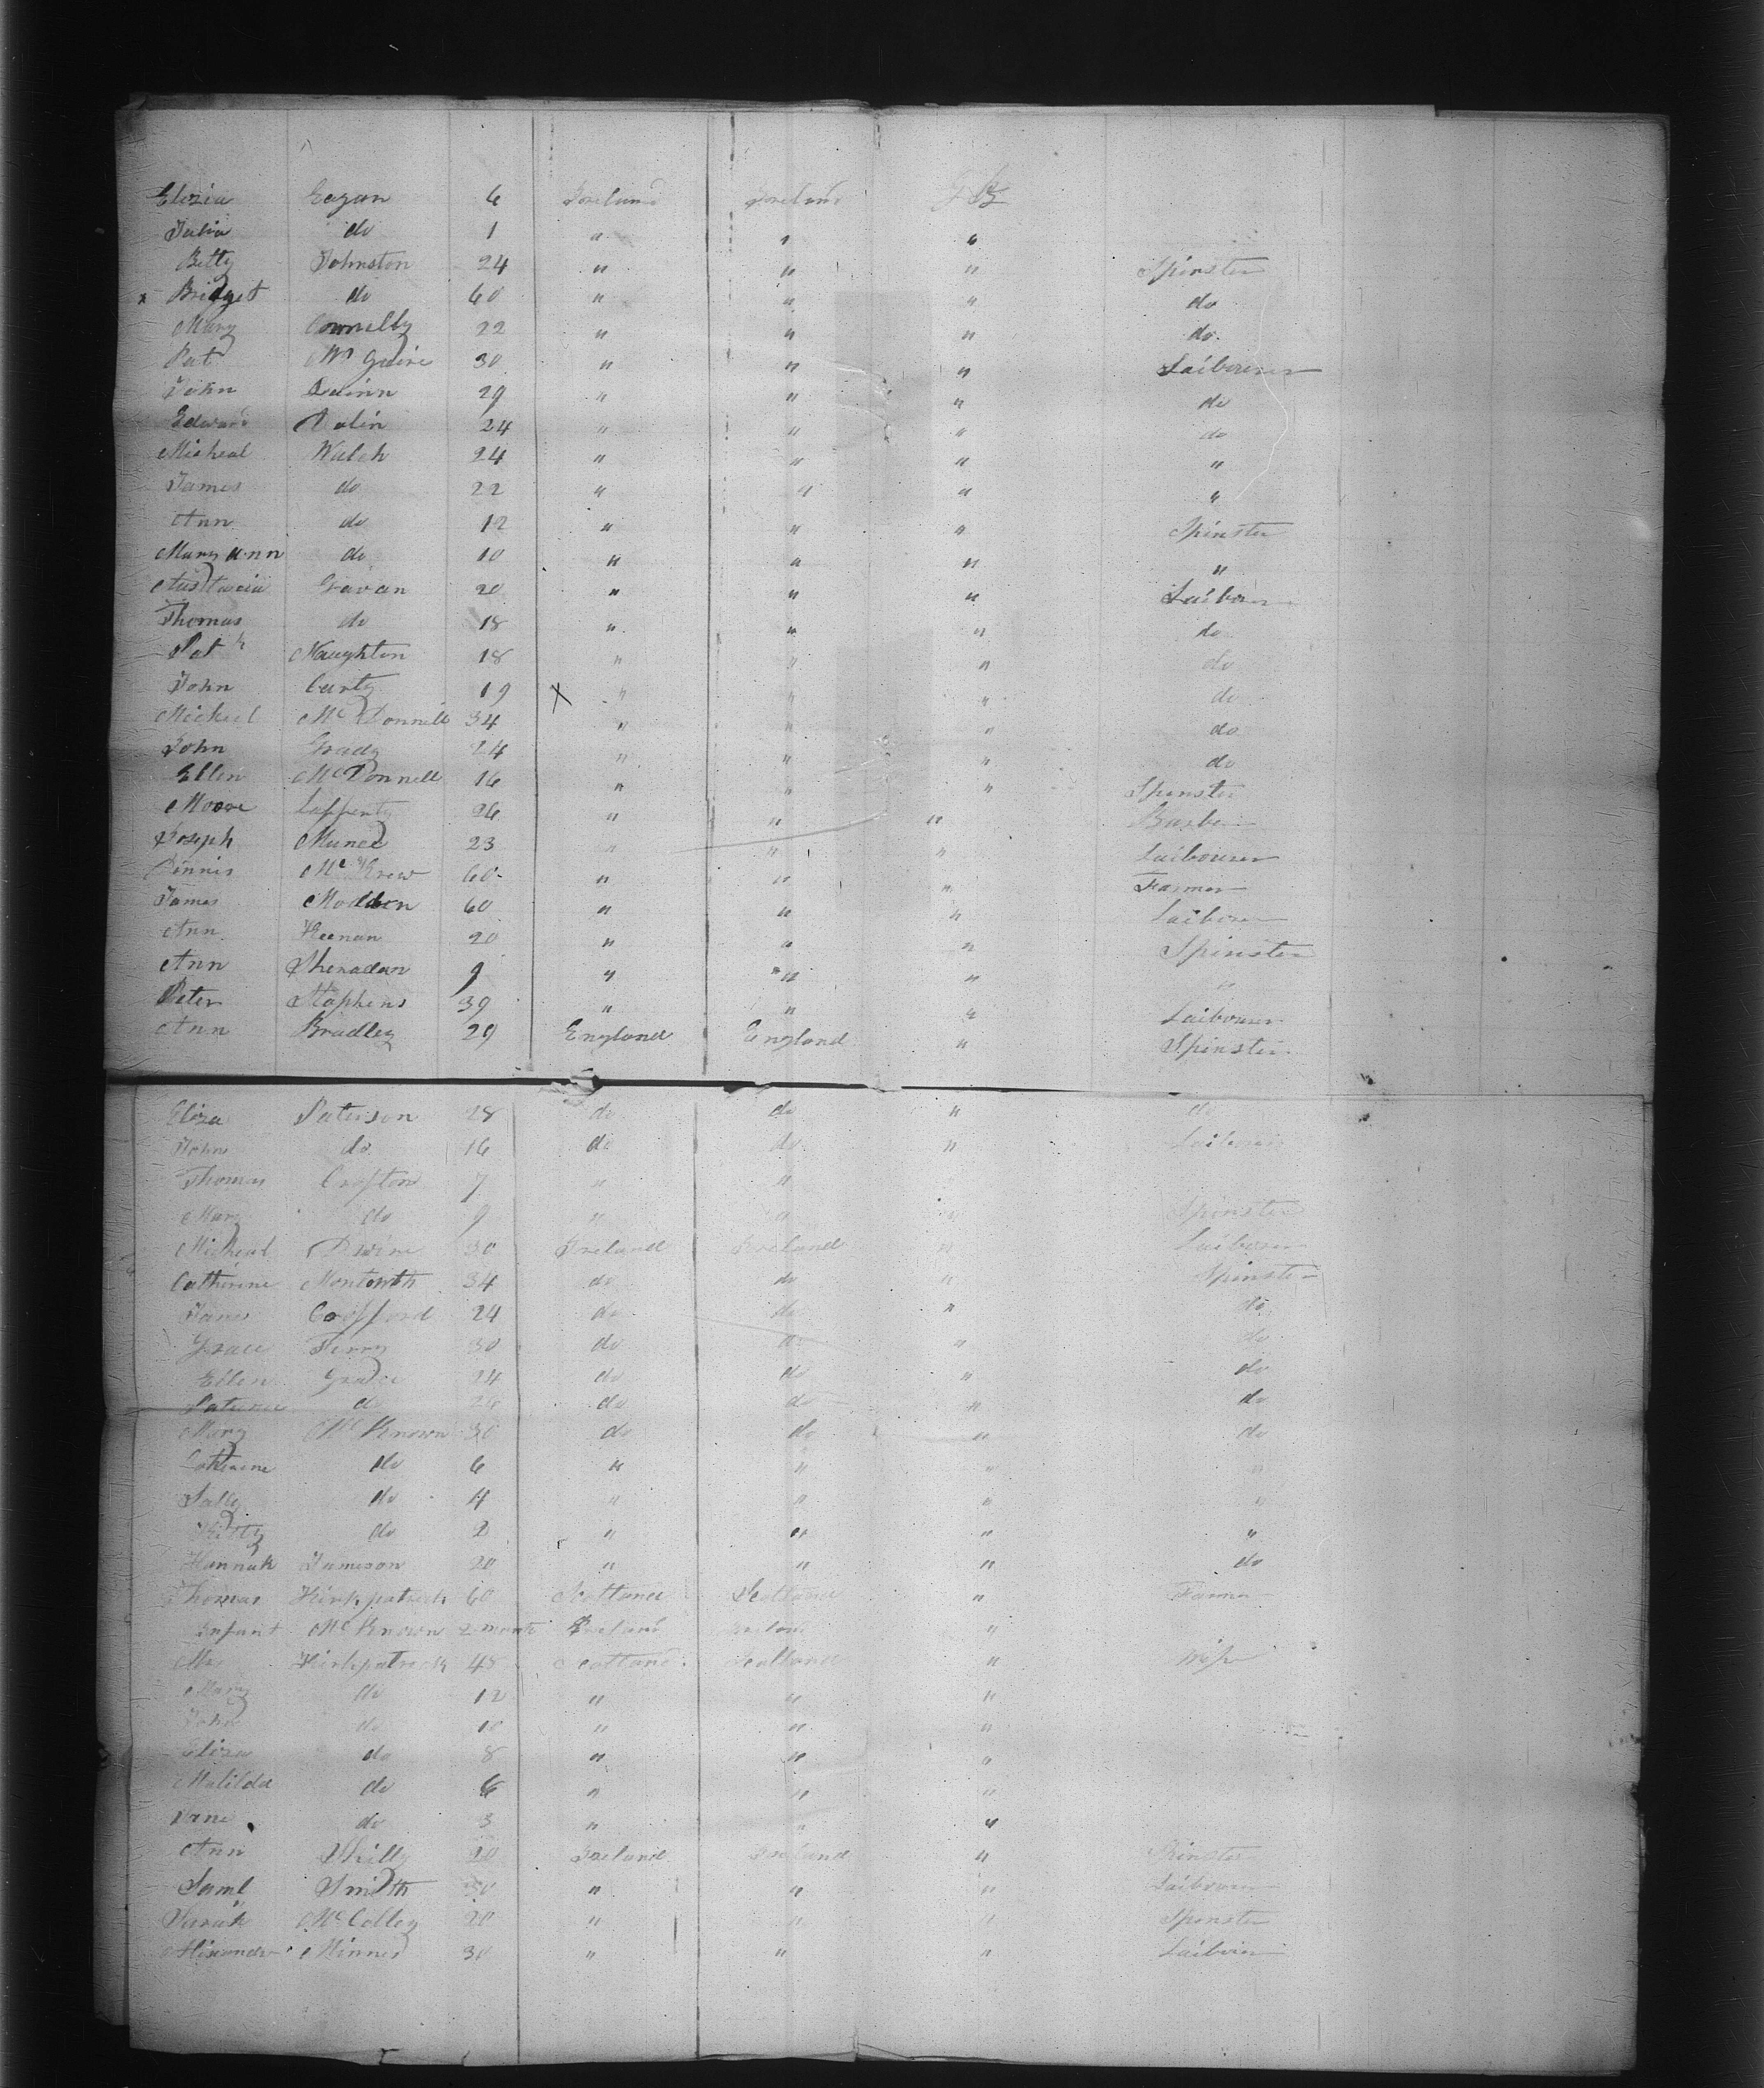 Elizia Eagan 6 Ireland Ireland
Julia do 1 " " "
Betty Johnston 24 " " " Spinster
x Bridget do 60 " " " do
Mary Connelly 22 " " " do
Pat McGuire 30 " " " Laibourer
John Quinn 29 " " " do
Edward 24 " " " do
Micheal Walch 24 " " " "
James do 22 " " " "
Ann do 12 " " " Spinster
Mary ann do 10 " " " "
Gavan 20 " " " Laiborer
Thomas do 18 " " " do
Patk Naughton 18 " " " do
John Carty 19 X " " " do
Micheal McDonnell 34 " " " do
John Grady 24 " " " do
Ellen McDonnell 16 " " " Spinster
Moore 26 " " "
Joseph 23 " " " Laibourer
Dennis 60 " " " Farmer
James Madden 60 " " " Laiborer
Ann Heenan 20 " " " Spinster
Ann Sheradan 9 " " " "
Peter Staphens 39 " " " Laibourer
Ann Bradley 29 England England " Spinster
Eliza Paterson 28 do do " do
John do 16 do do " Laiborer
Thomas Crofton 7 " "
Mary do 9 " " " Spinster
Micheal Devine 30 Ireland Ireland " Laiborer
Catherine 34 do do " Spinster
24 do do " do
Grace Ferry 30 do do " do
Ellen 24 do do " do
do do do " do
Mary McKnown 30 do do " do
Catherine do 6 " " " "
Sally do 4 " " " "
Kitty do 2 " " " "
Hannah Jameson 20 " " " do
Thomas Kirkpatrick 60 Scotland Scotland " Farmer
Infant McKnown 2 month Ireland Ireland "
Mrs Kirkpatrick 48 Scotland Scotland " Wife
Mary do 12 " " "
John do 10 " " "
Eliza do 8 " " "
Matilda do 6 " " "
Jane do 3 " " "
Ann 20 Ireland Ireland " Spinster
Saml Smith 30 " " " Laibourer
Sarah McColley 20 " " " Spinster
30 " " " Laiborer